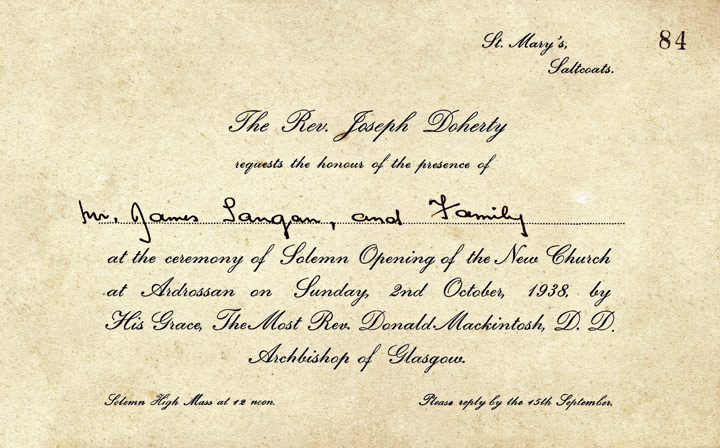 St. Mary's,
84
Saltcoats.
The Rev. Joseph Doherty
requests the honour of the presence of
Mr. James Langan, and Family
at the ceremony of Solemn Opening of the New Church
at Ardrossan on Sunday, 2nd October, 1938, by
His Grace, The Most Rev. Donald Mackintosh, D. D.
Archbishop of Glasgow.
Solemn High Mass at 12 noon.
Please reply by the 15th September.